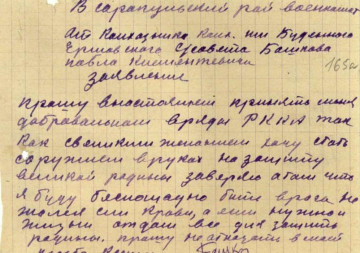 В Сарапульский рай военкомат
От Колхозника колх. им Буденного
Ершовского С/совета Башкова
Павла Климентьевича
165а
заявление
прошу военкомат принять меня
добравольцом вряды РККА так
как свеликим желанием хочу стать
соружием вруках на защиту
великой родины заверяю в том что
я буду беспощадно бить врага не
жалея сил крови, а если нужно и
жизни отдам все для защиты
родины. прошу не отказать в моей